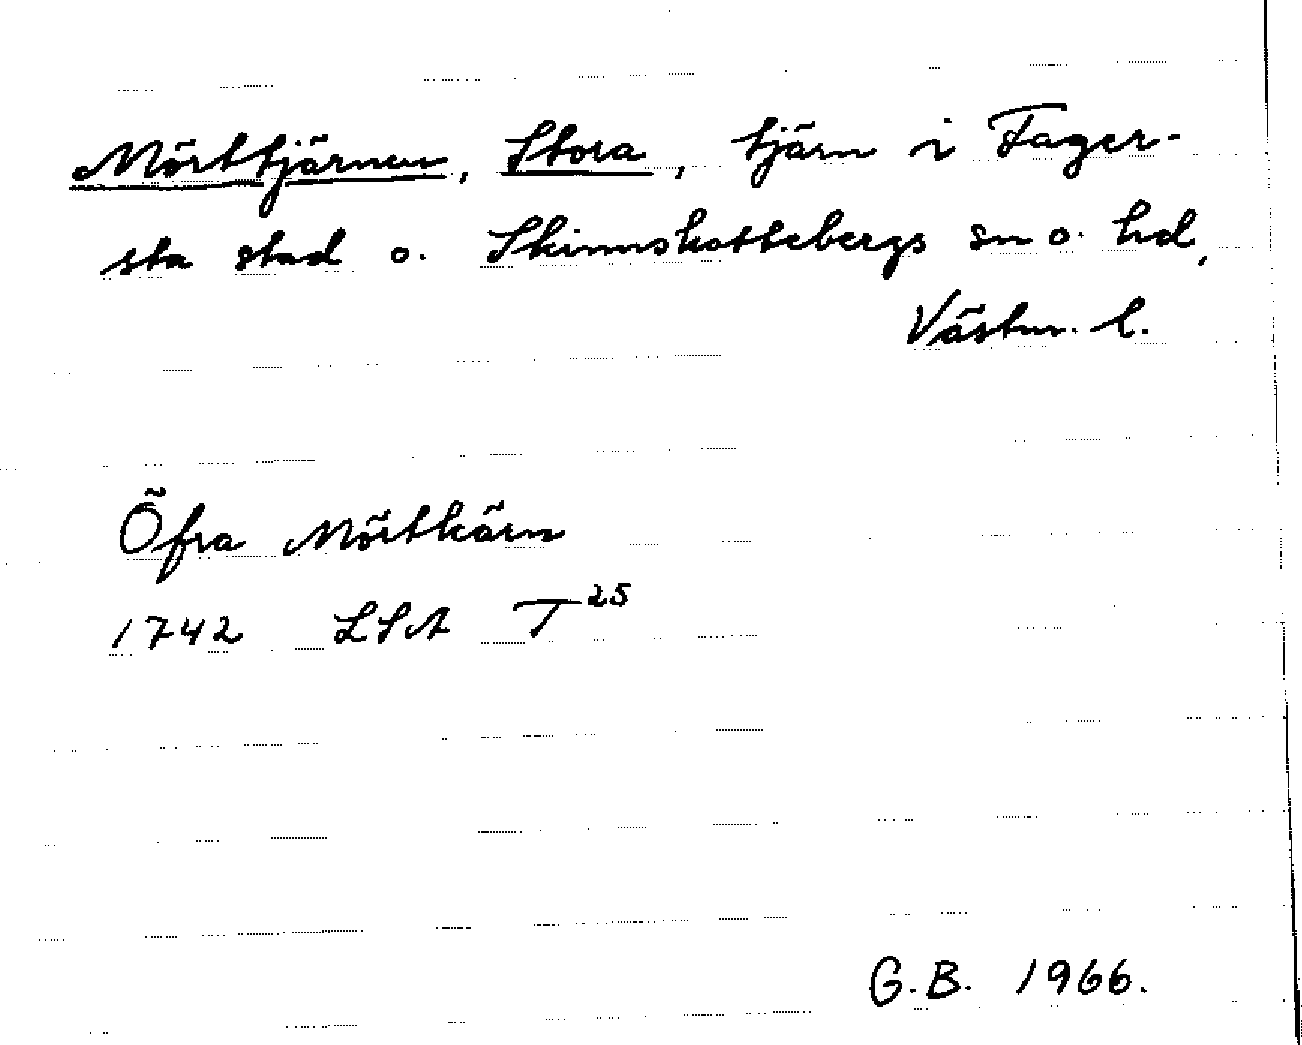 Mörttjärnen, Stora, tjärn i Fager-
sta stad o. Skinnskattebergs sn o. hd,
Västm. l.
Öfra Mörtkärn
1742 LSA T25
G.B. 1966.